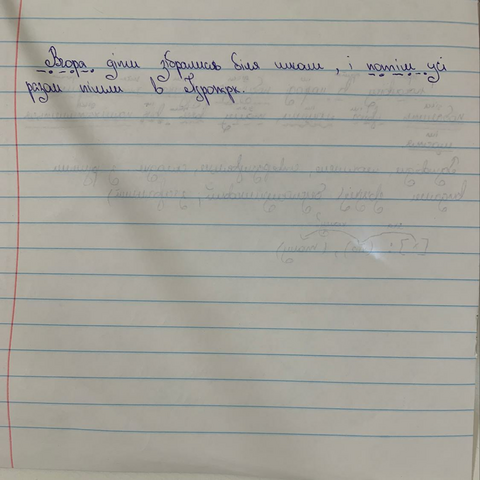 Вгора діти зібрались біля школи, і потім усі
разом пішли в Гуропарк.